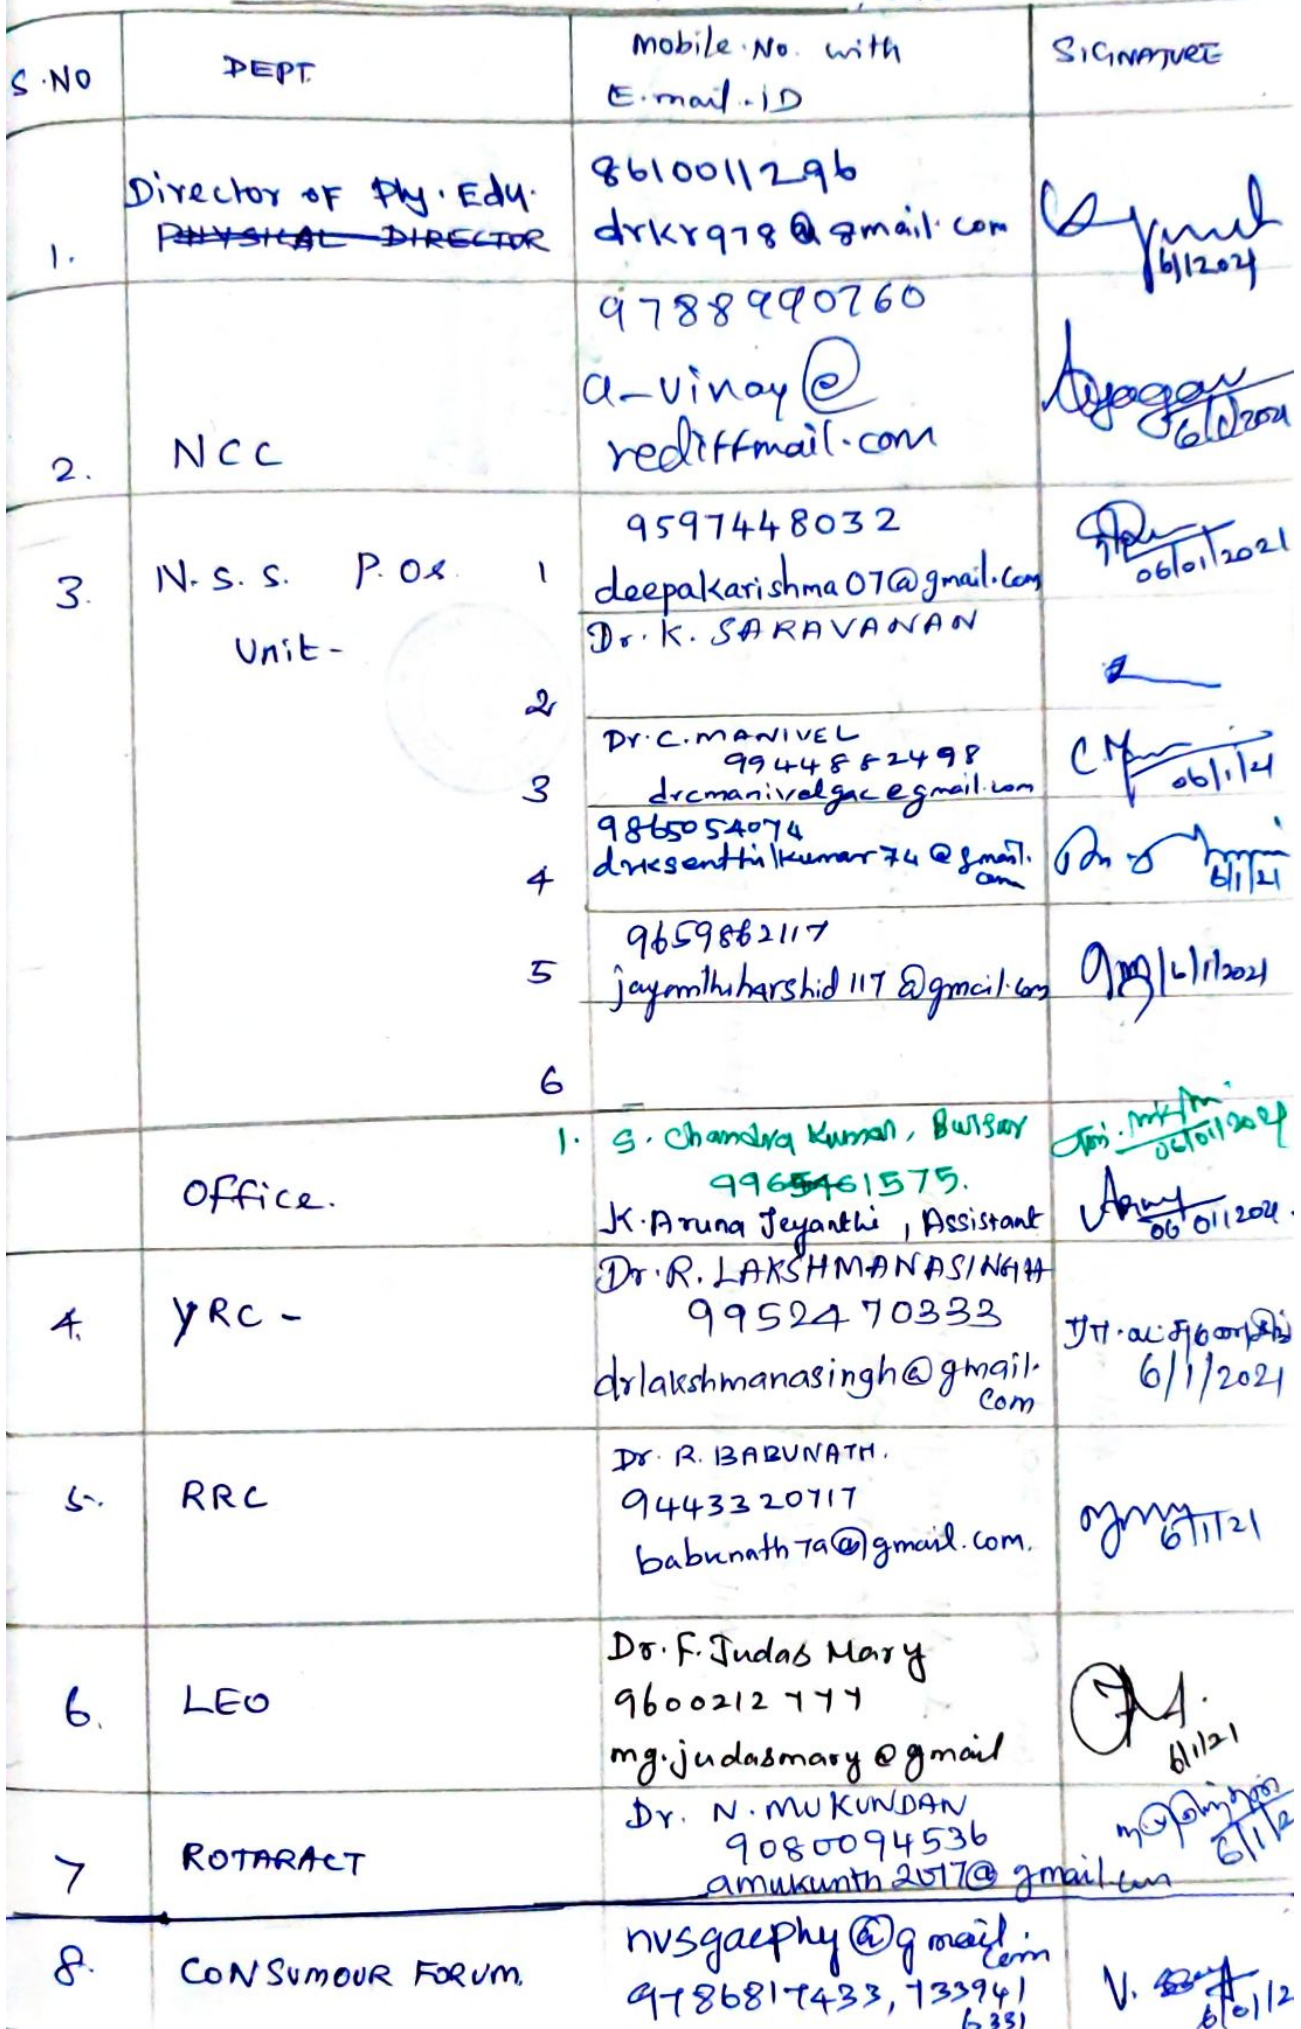 S.NO DEPT. Mobile.No. with
E.mail.ID SIGNATURE
Director of Phy.Edu.
PHYSICAL DIRECTOR
1.
8610011296
drkr978@gmail.com
6/1/2021
9788990760
a-vinay@
rediffmail.com
2. NCC
6/1/2021
3. N.S.S. P.Os. 1
Unit-
9597448032
deepakarishma07@gmail.com
06/01/2021
2
Dr.K. SARAVANAN
3
Dr.C.MANIVEL
9944882498
drcmanivelgac@gmail.com
06/1/21
4
9865054074
drksenthilkumar74@gmail.
com
6/1/21
5
9659862117
jayanthiharshid117@gmail.com
6/1/2021
6
Office.
1. S. Chandra Kumar, Bursar
9965461575.
06/01/2021
K.Aruna Jeyanthi, Assistant
06/01/2021.
4. YRC -
Dr.R. LAKSHMANASINGH
9952470333
drlakshmanasingh@gmail.
com
6/1/2021
5. RRC
Dr. R. BABUNATH.
9443320717
babunath79@gmail.com.
6/1/21
6. LEO
Dr. F. Judas Mary
9600212777
mg.judasmary@gmail
6/1/21
7 ROTARACT
Dr. N. MUKUNDAN
9080094536
amukunth2017@gmail.com
6/1/2
8. CONSUMOUR FORUM.
nvsgacphy@gmail.
com
9786817433, 733941
6331
V.
6/01/2